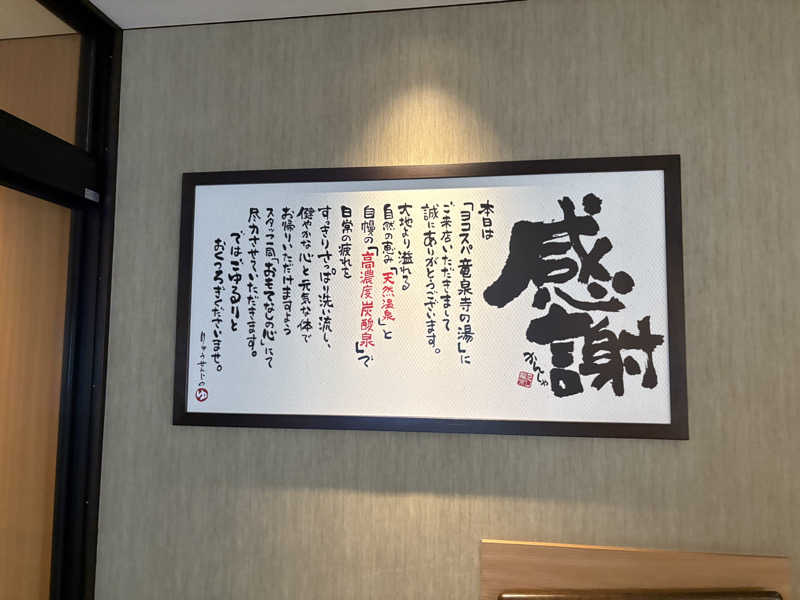 感謝
かんしゃ
本日は
「ヨコスパ竜泉寺の湯」に
ご来店いただきまして
誠にありがとうございます。
大地より溢れでる
自然の恵み「天然温泉」と
自慢の「高濃度炭酸泉」で
日常の疲れを
すっきりさっぱり洗い流し、
健やかな心と元気な体で
お帰りいただけますよう
スタッフ一同「おもてなしの心」にて
尽力させていただきます。
では、ごゆるりと
おくつろぎくださいませ。
りゅうせんじの
ゆ